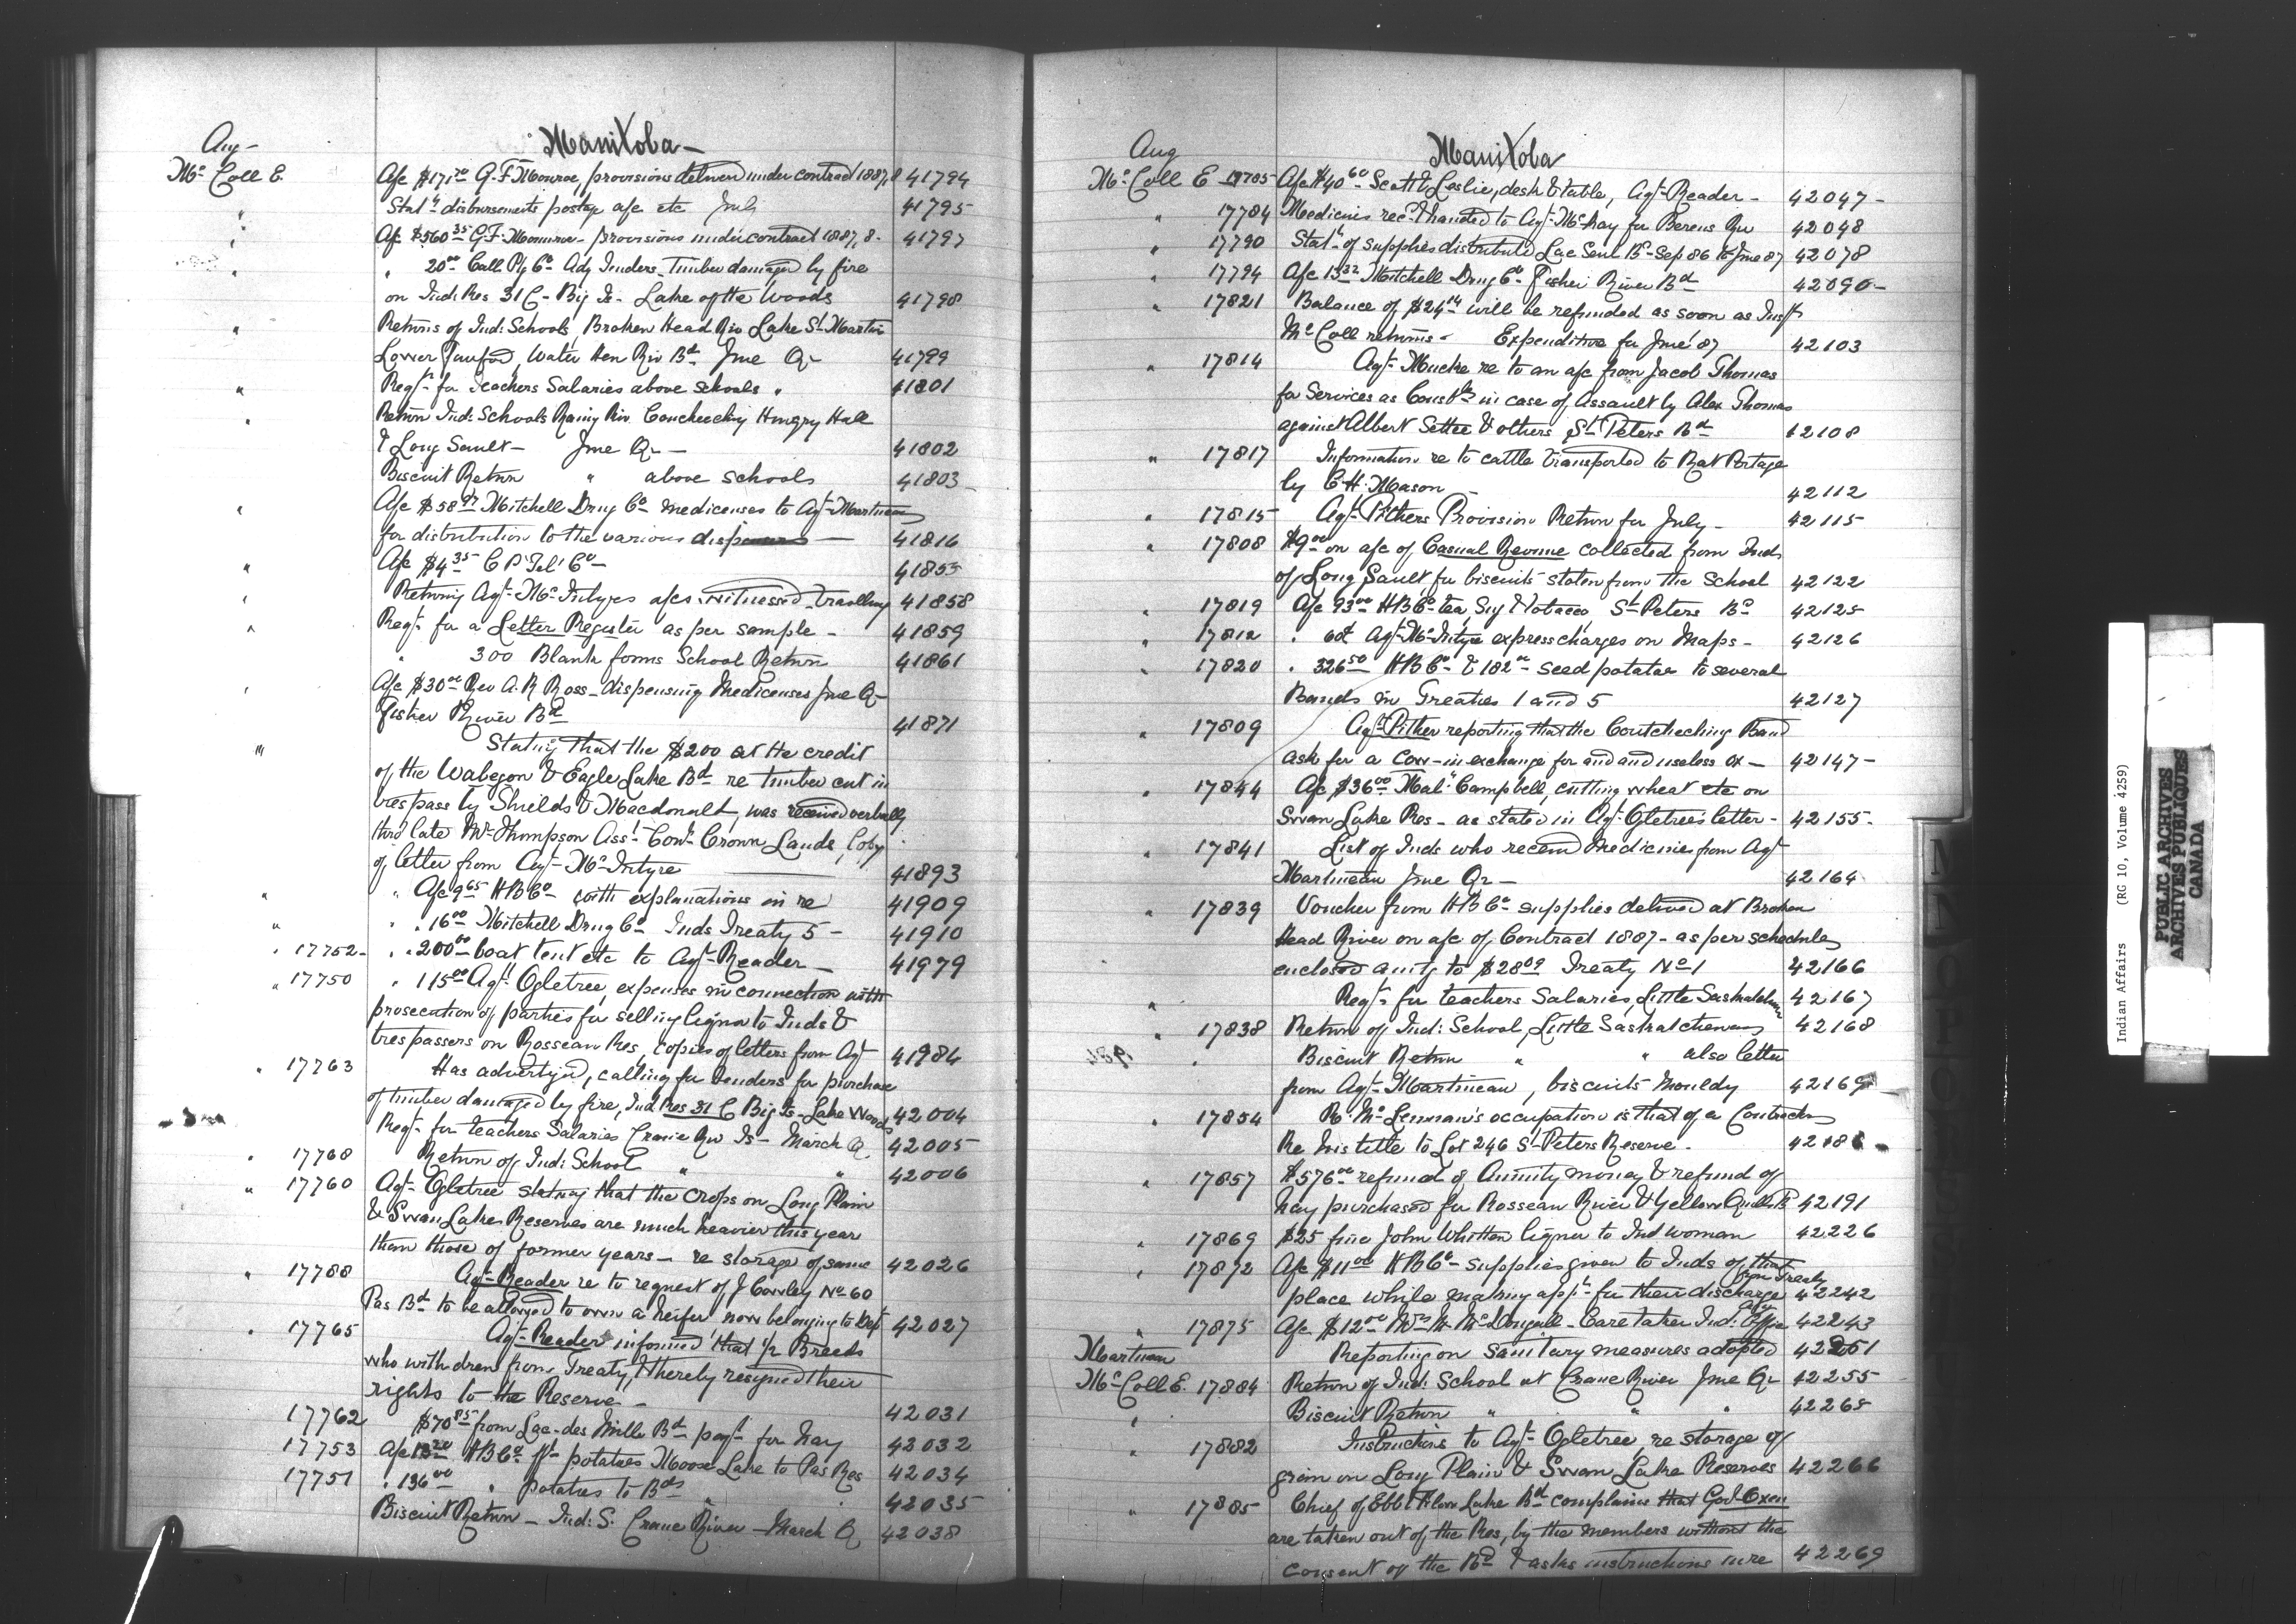 Aug -
Manitoba -
Mc Coll E. A/c $171.70 G. F. Monroe, provisions delivered under contract 1887,8 41794
" Statt disbursements postage a/c etc July 41795
" A/c $560 35 G. F. Monroe - provisions under contract 1887,8 - 41797
" " 20 00 Call Ptg Co Adv Tenders - Timber damaged by fire
on Ind: Res 31 C - Big Is - Lake of the Woods 41798
" Returns of Ind: Schools, Broken Head Riv Lake St Martin
Lower Water Hen Riv Bd June Qr 41799
" Reqt for Teachers Salaries above schools " 41801
" Return Ind: Schools Rainy Riv. Hungry Hall
& Long Sault - June Qr - 41802
Biscuit Return " above schools 41803
" A/c $58 97 Mitchell Drug Co medicenses to Agt Martineau
for distribution to the various 41816
" A/c $4 35 C P Tel Co - 41853
" Returning Agt McIntyres a/cs witnessed - travelling 41858
" Reqt for a Letter Register as per sample - 41859
" 300 Blank forms School Return 41861
" A/c $30 00 Rev A. R Ross - dispensing Medicenses June Qr
Fisher River Bd 41871
" Stating that the $200 at the credit
of the Wabegon & Eagle Lake Bd re timber cut in
trespass by Shields & Macdonald, was received verbally
thro late Mr Thompson Asst Comr Crown Lands, Copy
of letter from Agt McIntyre 41893
" " A/c 9 65 H B Co with explanations in re 41909
" " " 16 00 Mitchell Drug Co Inds Treaty 5 - 41910
" 17752 - " " 200 00 boat tent etc to Agt Reader - 41979
" 17750 " 115 00 Agt Ogletree, expenses in connection with
prosecution of parties for selling liquor to Inds &
trespassers on Rosseau Res, copies of letters from Agt 41984
" 17763 Has advertized, calling for tenders for purchase
of timber damaged by fire, Ind Res 31 C Big Is - Lake Woods 42004
Reqt for teachers Salaries Crane Riv Is - March Q. 42005
" 17768 Return of Ind: School " " 42006
" 17760 Agt Ogletree stating that the crops on Long Plain
& Swan Lakes Reserves are much heavier this year
than those of former years - re storage of same 42026
" 17788 Agt Reader re to request of J Cowley No 60
Pas Bd to be allowed to own a heifer now belonging to Dept 42027
" 17765 Agt Reader informed that 1/2 Breeds
who withdrew from Treaty, thereby resigned their
rights to the Reserve - 42031
17762 $70 85 from Lac-des Mille Bd payt for hay 42032
17753 A/c H B Co frt potatoes Moose Lake to Pas Res 42034
17751 " 136 00 " potatoes to Bds " 42035
Biscuit Return - Ind: S. Crane River - March Q 42038
Aug
Manitoba
Mc Coll E 17785 A/c $40 60 Scott & Leslie, desk & table, Agt Reader - 42047 -
" 17784 Medicines recd & handed to Agt McKay for Berens Riv 42048
" 17790 Statt of supplies distributed Lac Seul Bd - Sep 86 to June 87 42078
" 17794 A/c 13 32 Mitchell Drug Co Fisher River Bd 42090 -
" 17821 Balance of $24 14 will be refunded as soon as Inspr
McColl returns - Expenditure for June '87 42103
" 17814 Agt Muckle re to an a/c from Jacob Thomas
for Services as Constble in case of assault by Alex Thomas
against Albert Settee & others St Peters Bd 42108
" 17817 Information re to cattle transported to Rat Portage
by C. H. Mason 42112
" 17815 Agt Pithers Provision Return for July - 42115
" 17808 $9 00 on a/c of Casual Revenue collected from Inds
of Long Sault for biscuits stolen from the school 42122
" 17819 A/c 93 00 H B Co - tea, Sug & tobacco, St Peters Bd 42125
" 17812 " 60c Agt McIntyre express charges on Maps - 42126
" 17820 " 326 50 H B Co & 182 00 seed potatoe to several
Bands in Treaties 1 and 5 42127
" 17809 Agt Pither reporting that the Coutcheching Band
ask for a Cow - in exchange for and and useless ox - 42147 -
" 17844 A/c $36 00 Mal: Campbell, cutting wheat etc on
Swan Lake Res - as stated in Agt Ogletrees letter - 42155 -
" 17841 List of Inds who received Medicines from Agt
Martineau June Qr - 42164
" 17839 Voucher from H B Co supplies delivered at Broken
Head River on a/c of Contract 1887 - as per schedules
enclosed amtg to $28 09 Treaty No 1 42166
" Reqt for teachers Salaries, Little Saskatchewan 42167
" 17838 Return of Ind: School, Little Saskatchewan 42168
" Biscuit Return " " also letter
from Agt Martineau, biscuits mouldy 42169
" 17854 R. McLennan's occupation is that of a Contractor
Re his title to Lot 246 St Peters Reserve - 42188 -
" 17857 $576 00 refund of Annuity money & refund of
hay purchased for Rosseau River & Yellow Quills B 42191
" 17869 $25 fine John Whitten liquor to Ind woman 42226
" 17872 A/c $11 00 H B Co - supplies given to Inds of that
place while making appn for their discharge from Treaty 42242
" 17875 A/c $12 00 Mrs M. McDougall - Care taker Ind: Office 42243
Martineau Reporting on sanitary measures adopted 42251
Mc Coll E. 17884 Return of Ind: School at Crane River June Qr 42255
" Biscuit Return " " " 42265
" 17882 Instructions to Agt Ogletree, re storage of
grain on Long Plain & Swan Lake Reserves 42266
" 17885 Chief of Ebb & Flow Lake Bd complains that Govt Oxen
are taken out of the Res, by the members without the
consent of the Bd & asks instructions in re 42269
Indian Affairs (RG 10, Volume 4259)
PUBLIC ARCHIVES
ARCHIVES PUBLIQUES
CANADA